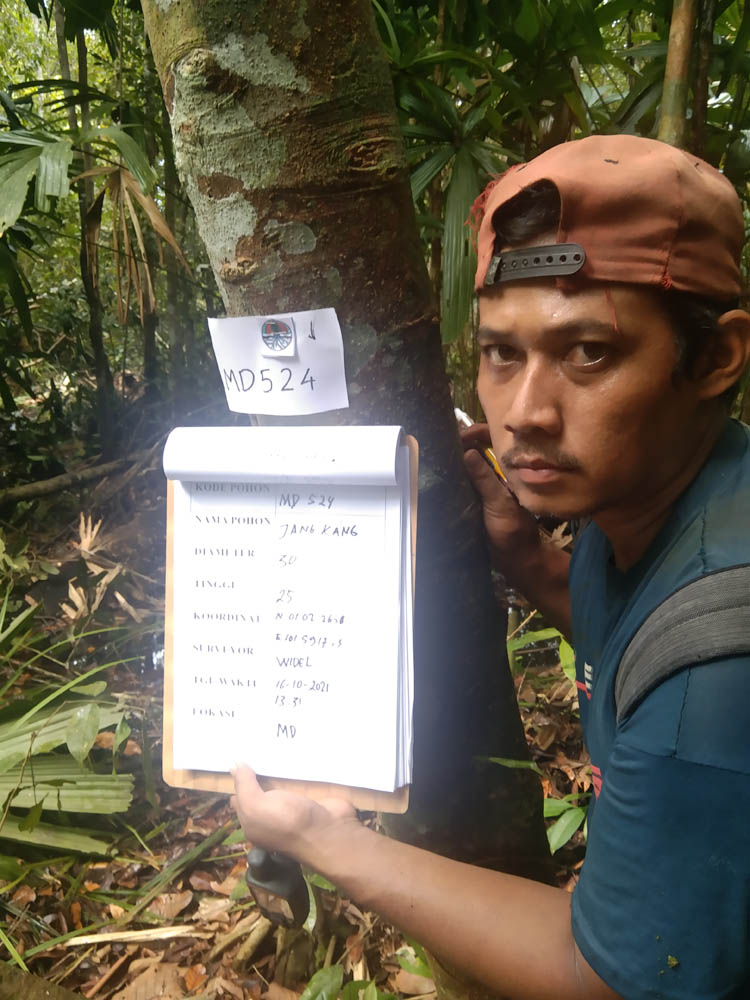 MD524
KODE POHON MD 524
NAMA POHON JANG KANG
DIAMETER 30
TINGGI 25
KOORDINAT N 01 02
E 101 5917.3
SURVEYOR WIDEL
TGL WAKTU 16-10-2021
13:31
LOKASI MD